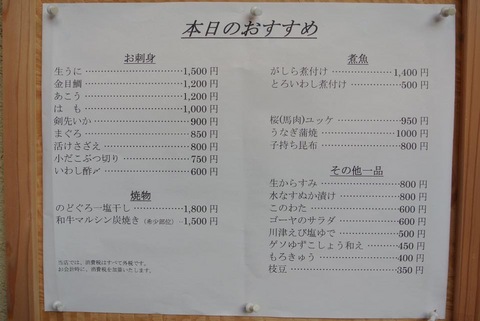 本日のおすすめ
お刺身
生うに………………………1,500 円
金目鯛………………………1,200 円
あこう………………………1,200 円
は も………………………1,000 円
剣先いか……………………900 円
まぐろ………………………850 円
活けさざえ…………………800 円
小だこぶつ切り……………750 円
いわし酢〆…………………600 円
焼物
のどぐろ一塩干し…………1,800 円
和牛マルシン炭焼き(希少部位)…1,500 円
当店では、消費税はすべて外税です。
お会計時に、消費税を加算いたします。
煮魚
がしら煮付け………………1,400 円
とろいわし煮付け…………500 円
桜(馬肉)ユッケ……………950 円
うなぎ蒲焼…………………1000 円
子持ち昆布…………………800 円
その他一品
生からすみ…………………800 円
水なすぬか漬け……………800 円
このわた……………………600 円
ゴーヤのサラダ……………600 円
川津えび塩ゆで……………500 円
ゲソゆずこしょう和え……450 円
もろきゅう…………………400 円
枝豆…………………………350 円